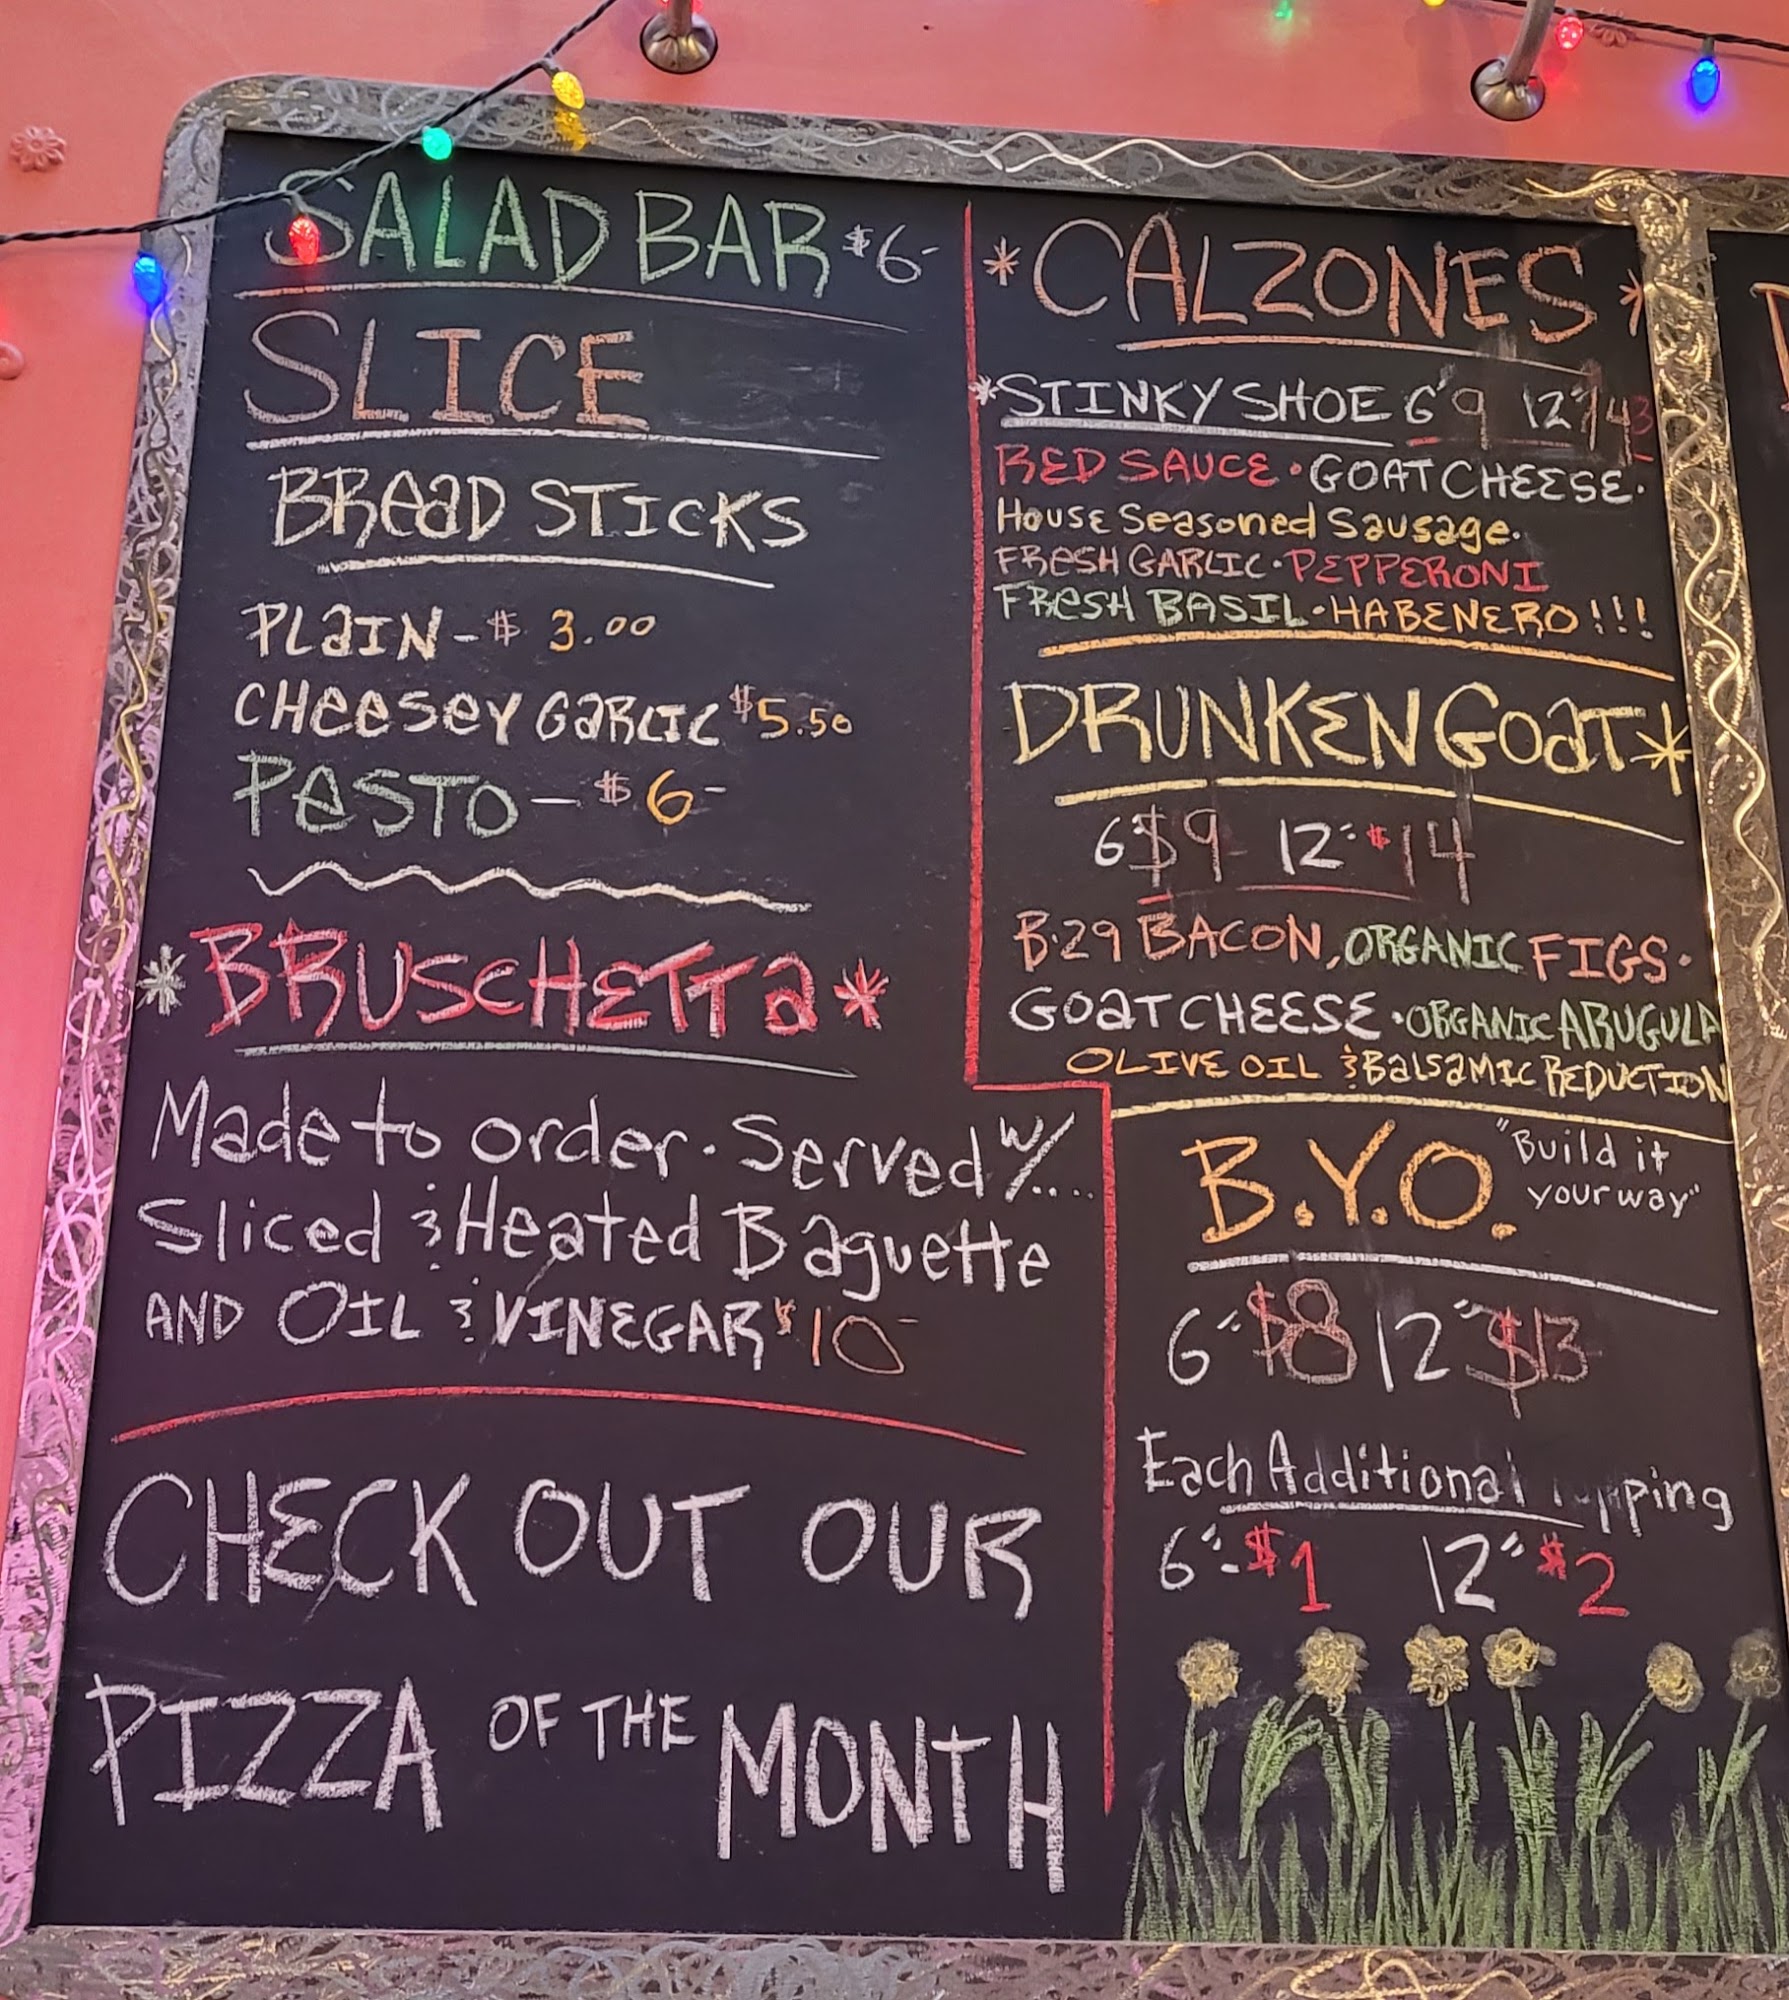 SALAD BAR $6-
SLICE
BREAD STICKS
PLAIN - $ 3.00
CHEESEY GARLIC $5.50
PESTO - $6-
*BRUSCHETTA*
Made to order · Served w/....
Sliced & Heated Baguette
AND OIL & VINEGAR $10-
CHECK OUT OUR
PIZZA OF THE MONTH
*CALZONES*
*STINKY SHOE 6" 9 12" 14
RED SAUCE · GOAT CHEESE ·
HOUSE SEASONED SAUSAGE ·
FRESH GARLIC · PEPPERONI
FRESH BASIL · HABENERO!!!
DRUNKEN GOAT*
6" $9 12" $14
B·29 BACON, ORGANIC FIGS ·
GOAT CHEESE · ORGANIC ARUGULA
OLIVE OIL & BALSAMIC REDUCTION
B.Y.O. "Build it
your way"
6" $8 12" $13
Each Additional Topping
6"- $1 12" $2